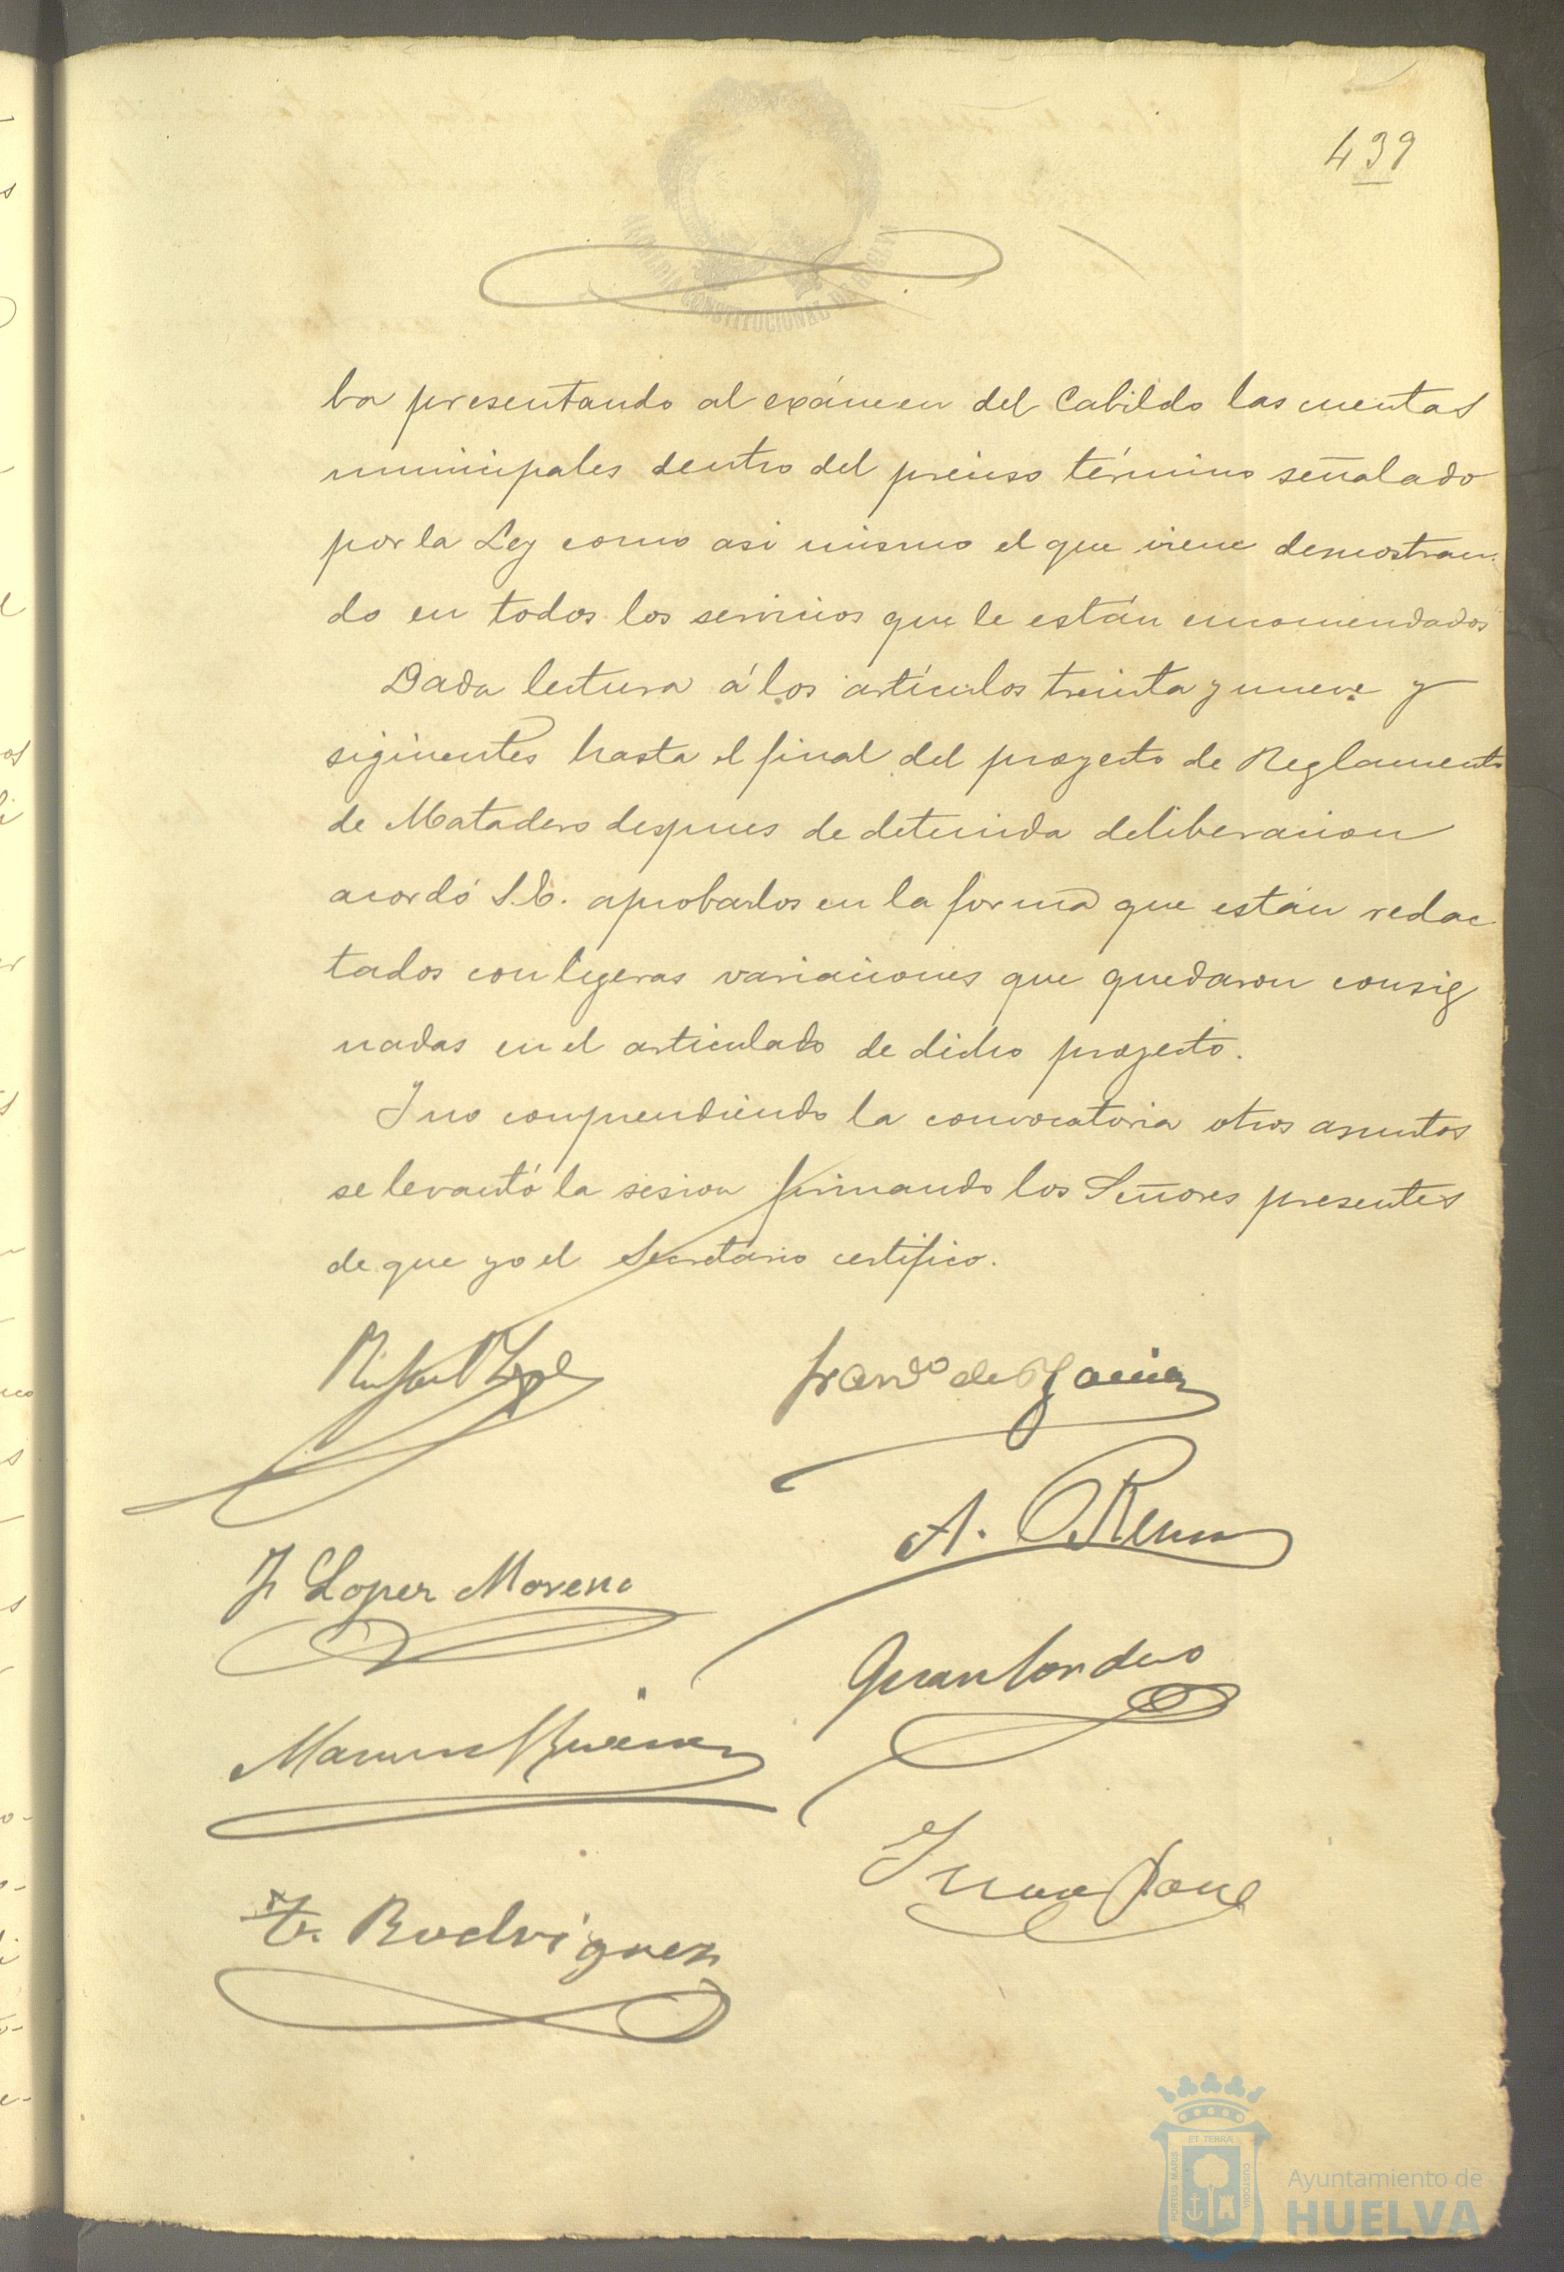 439
ALCALDIA CONSTITUCIONAL DE HUELVA
ba presentando al exámen del Cabildo las cuentas
municipales dentro del preciso término señalado
por la Ley como asi mismo el que viene demostran-
do en todos los servicios que le están encomendados
Dada lectura á los artículos treinta y nueve y
siguientes hasta el final del proyecto de Reglamento
de Matadero despues de detenida deliberacion
acordó S.E. aprobarlos en la forma que están redac
tados con ligeras variaciones que quedaron consig
nadas en el articulado de dicho proyecto.
Y no comprendiendo la convocatoria otros asuntos
se levantó la sesion firmando los Señores presentes
de que yo el Secretario certifico.
Franco de P
A.
J Lopez Moreno
Manuel
F. Rodriguez
PORTUS MARIS ET TERRÆ CUSTODIA
Ayuntamiento de
HUELVA